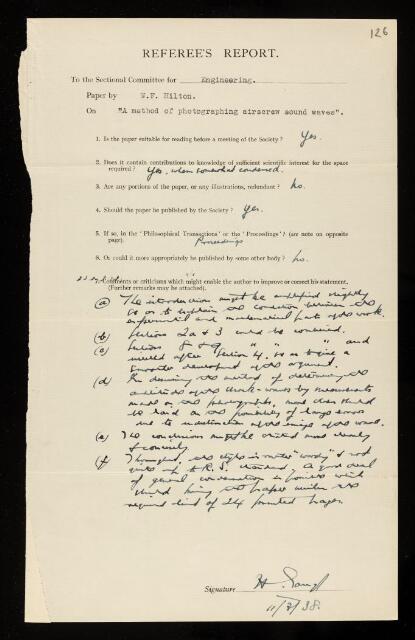 126
REFEREE'S REPORT.
To the Sectional Committee for Engineering.
Paper by W.F. Hilton.
On "A method of photographing airscrew sound waves".
1. Is the paper suitable for reading before a meeting of the Society? Yes.
2. Does it contain contributions to knowledge of sufficient scientific interest for the space
required? Yes, when somewhat condensed.
3. Are any portions of the paper, or any illustrations, redundant? No.
4. Should the paper be published by the Society? Yes.
5. If so, in the 'Philosophical Transactions' or the 'Proceedings'? (see note on opposite
page). Proceedings
6. Or could it more appropriately be published by some other body? No.
7. Comments or criticisms which might enable the author to improve or correct his statement.
(Further remarks may be attached).
(a) The introduction might be amplified slightly
so as to explain the connection between the
experimental and mathematical parts of the work.
(b) Sections 2a & 3 could be combined.
(c) Sections 8 & 9 " " " and
inserted after Section 4, so as to give a
smoother development of the argument.
(d) In describing the method of determining the
attitude of the shock-waves by measurements
made on the photographs, more stress should
be laid on the possibility of large errors
due to indistinctness of the image of the wave.
(e) The conclusions might be stated more clearly
& concisely.
(f) Throughout, the style is rather "wordy" & not
quite up to R.S. standard. A good deal
of general condensation is possible which
should bring the paper within the
required limit of 24 printed pages.
Signature H.
11/3/38.